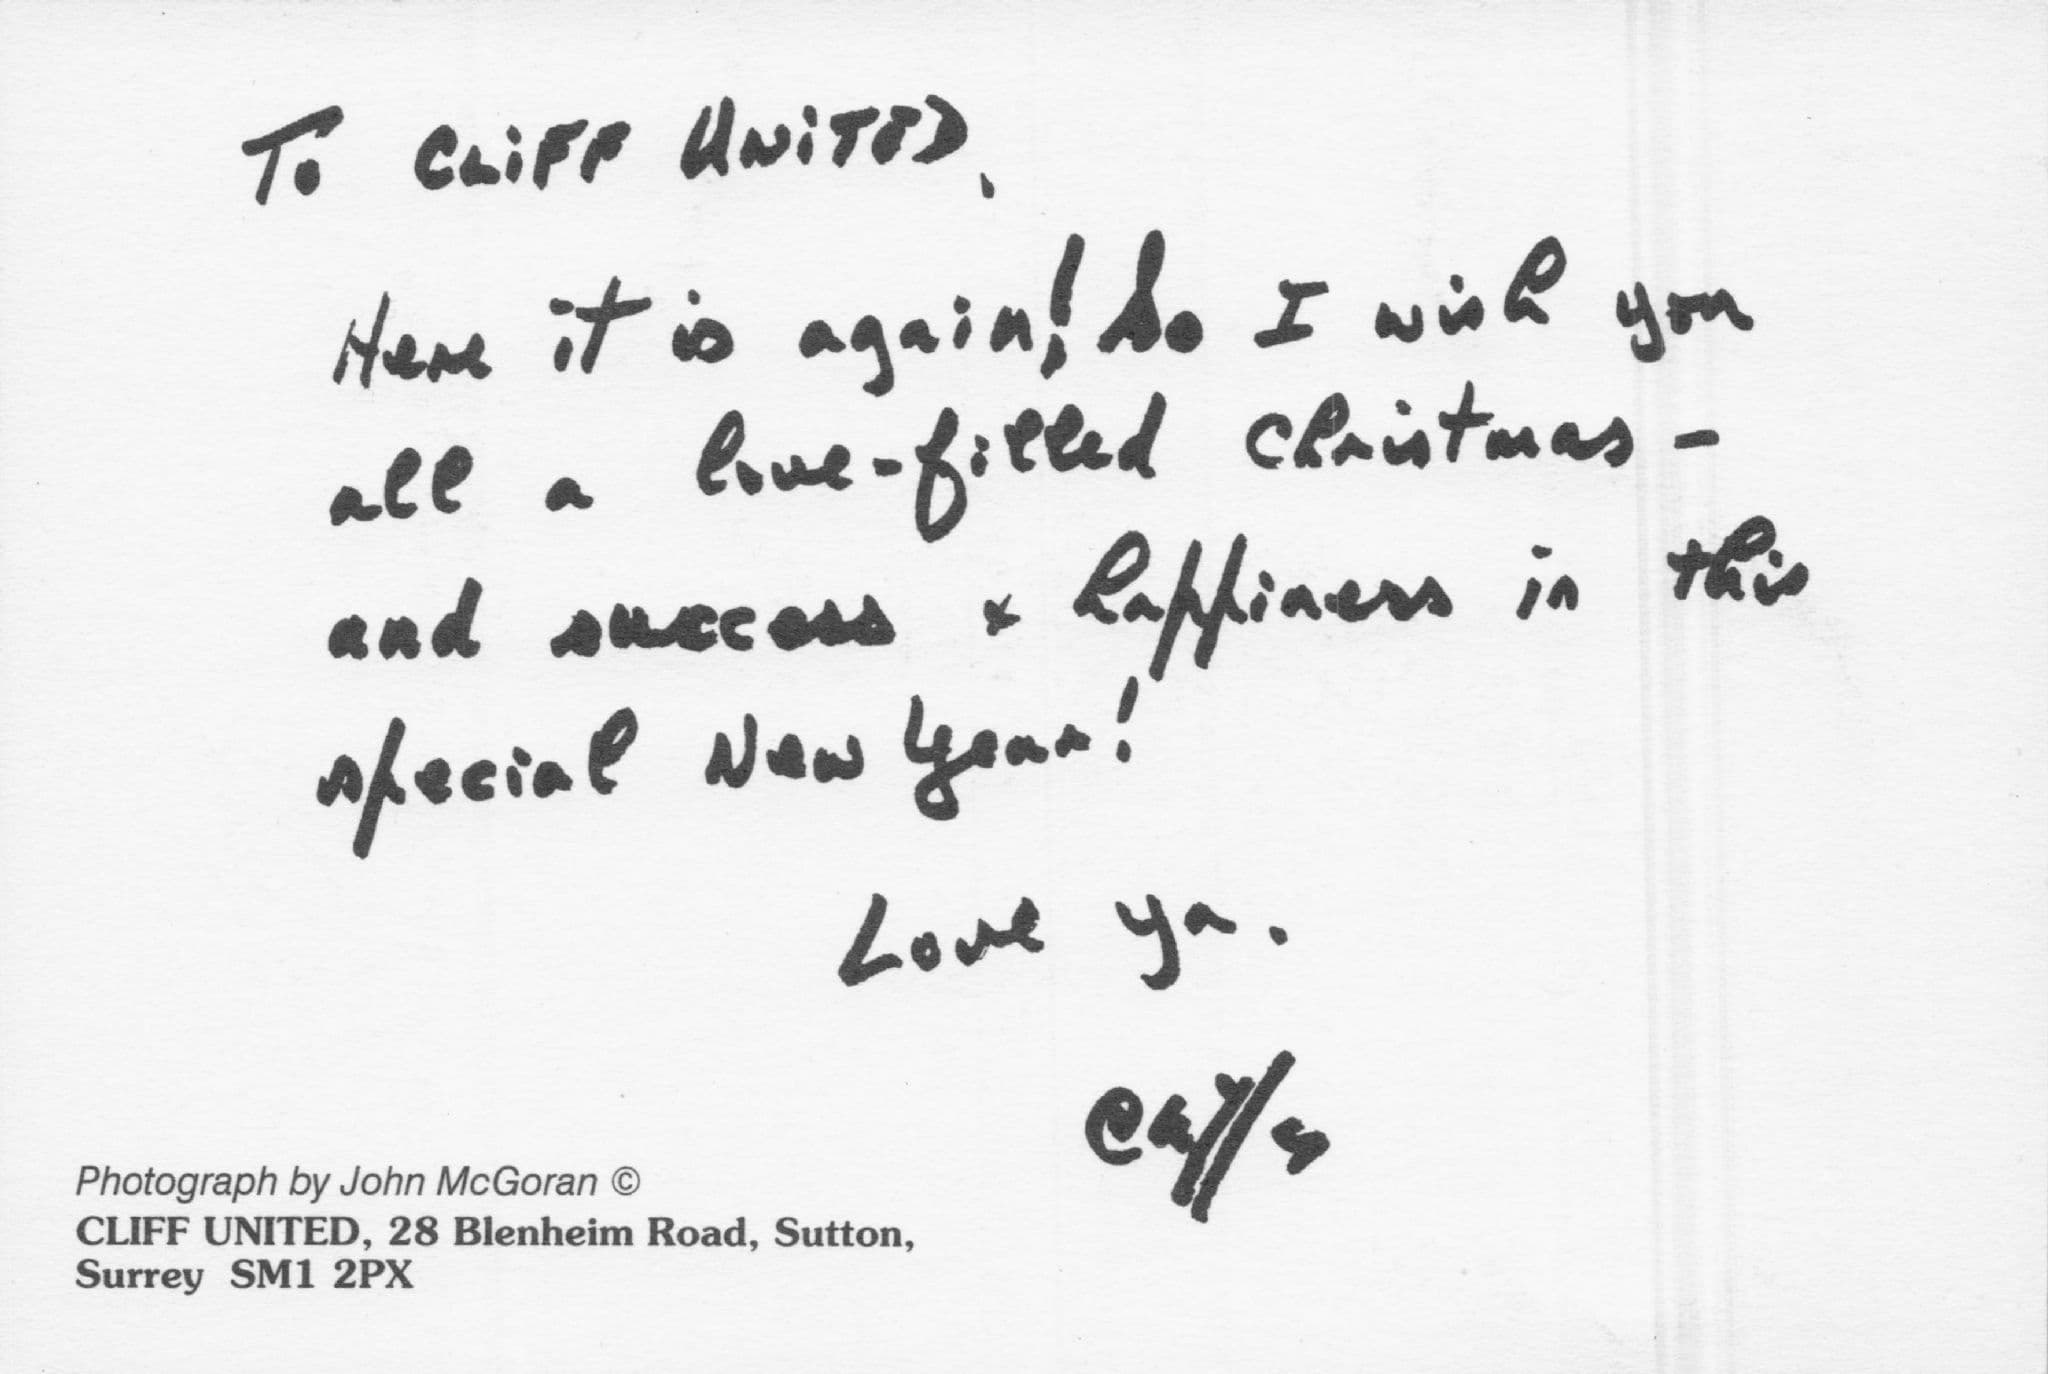 To CLiFF UNiTED,
Here it is again! So I wish you
all a love-filled Christmas -
and success & happiness in this
special New Year!
Love ya.
Cliff
Photograph by John McGoran ©
CLIFF UNITED, 28 Blenheim Road, Sutton,
Surrey SM1 2PX